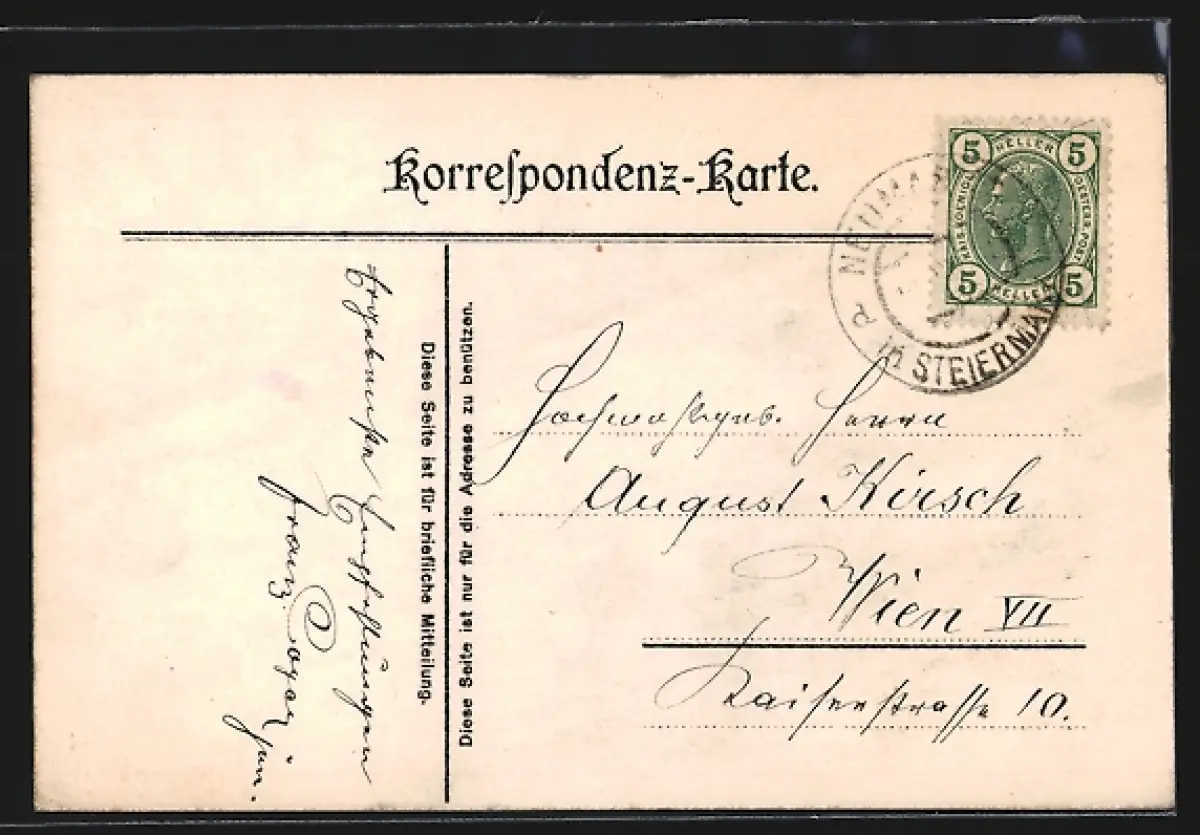 Korreſpondenz-Karte.
5 HELLER 5
KAIS. KOENIGL. OESTERR. POST.
5 HELLER 5
NEUMA
in STEIERMAR
a
Hochwohlgeb. Herrn
August Kirsch
Wien VII
Kaiserstrasse 10.
Diese Seite ist nur für die Adresse zu benützen.
Diese Seite ist für briefliche Mitteilung.
Ergebenste Empfehlungen
Franz
jun.